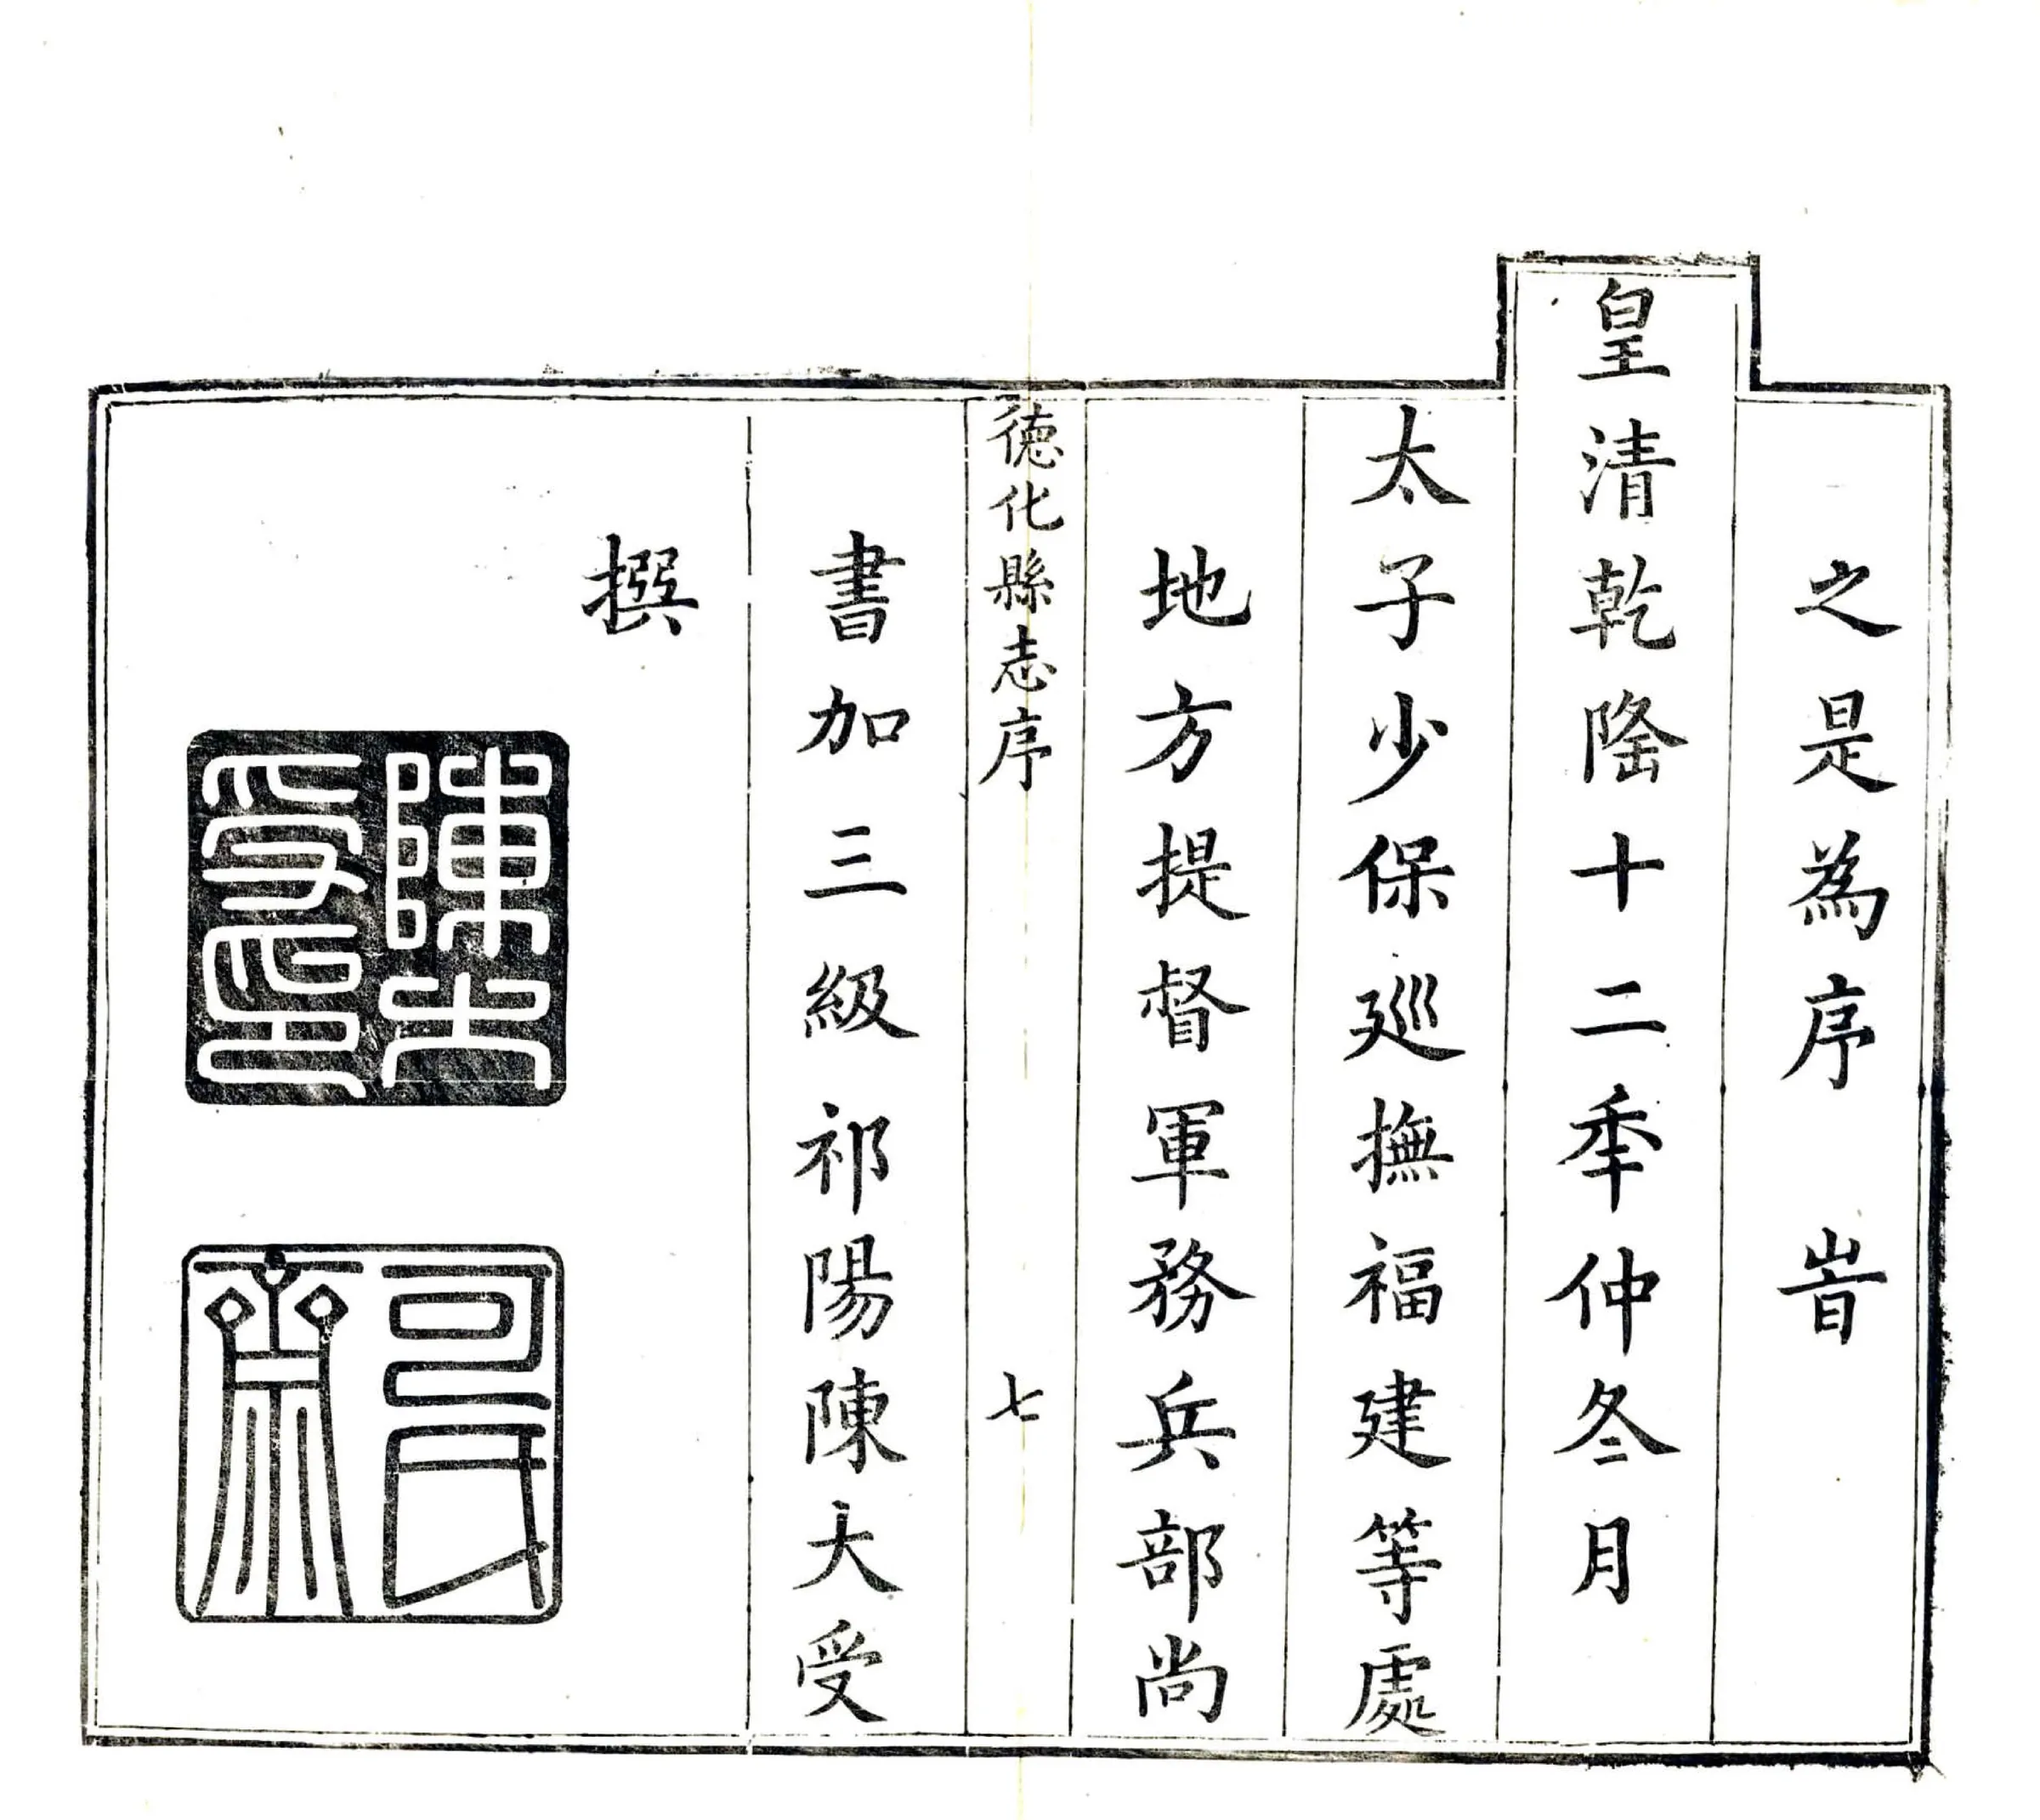 之是為序 旹
皇清乾隆十二秊仲冬月
太子少保廵撫福建等處
地方提督軍務兵部尚
徳化縣志序 七
書加三級祁陽陳大受
撰
陳大受印